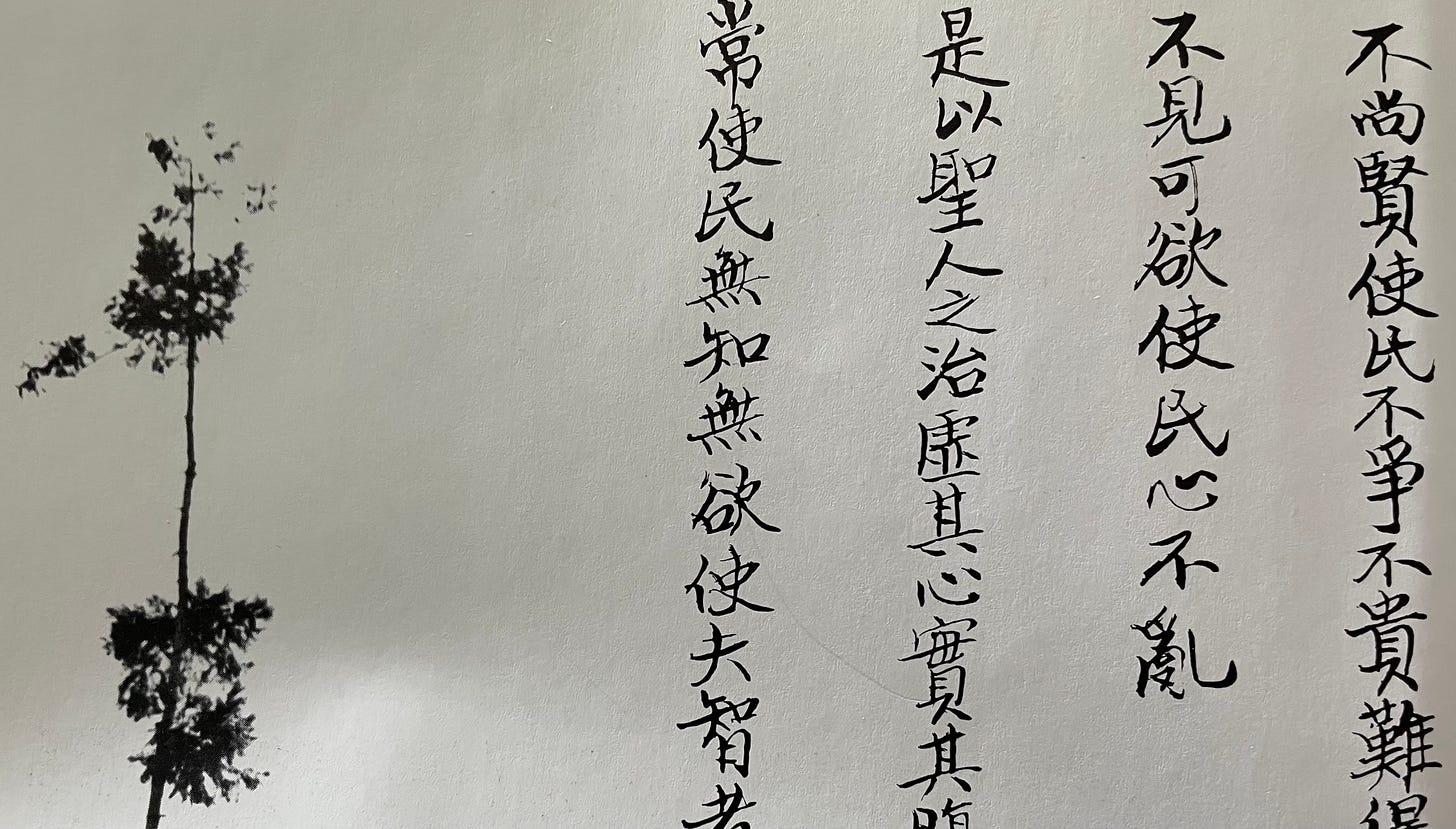 不尚賢使民不爭不貴難得
不見可欲使民心不亂
是以聖人之治虛其心實其腹
常使民無知無欲使夫智者